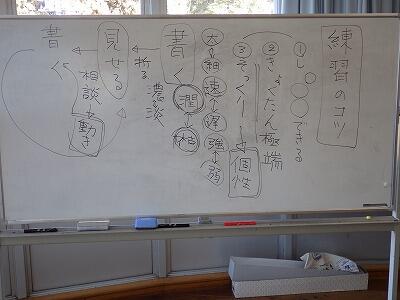 練習のコツ
①し○○できる
②きょくたん極端
③そっくり→個性
太↔細 速↔遅 強↔弱
書く
潤↔枯
濃淡
折る
見せる
相談
動き
書く